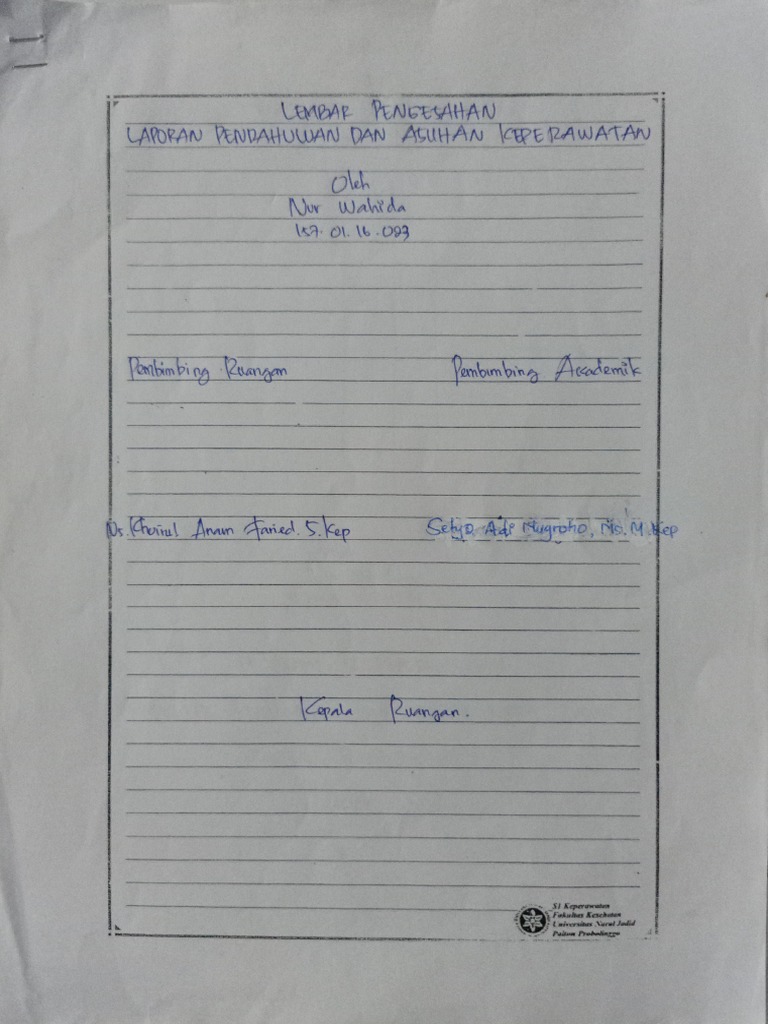 LEMBAR PENGESAHAN
LAPORAN PENDAHULUAN DAN ASUHAN KEPERAWATAN
Oleh
Nur Wahida
157.01.16.093
Pembimbing Ruangan Pembimbing Akademik
Ns. Khoirul Anam Faried. S.Kep Setyo Adi Nugroho, Ns. M.Kep
Kepala Ruangan.
S1 Keperawatan
Fakultas Kesehatan
Universitas Nurul Jadid
Paiton Probolinggo